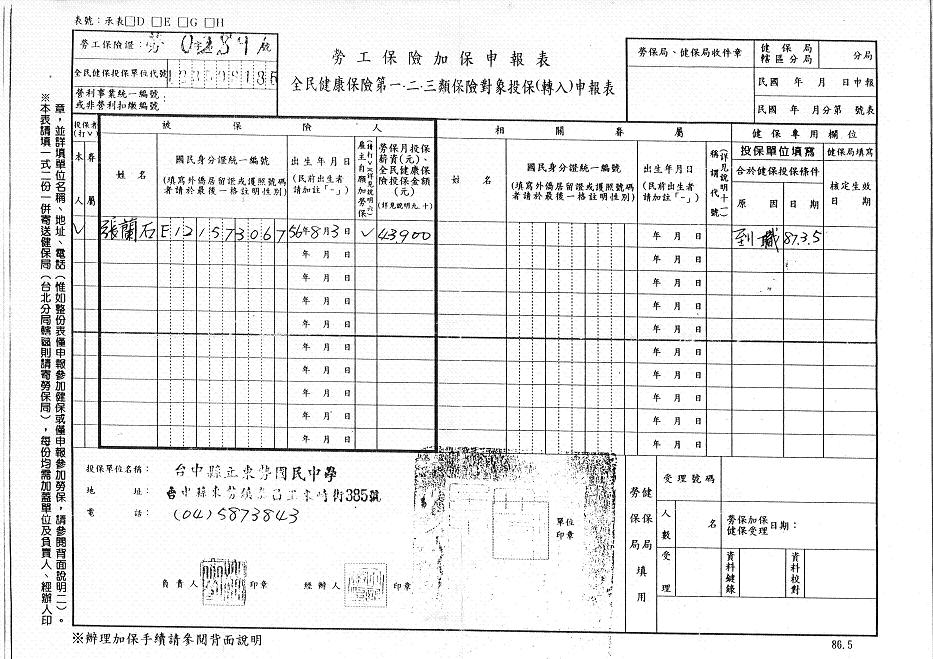 表號：承表□D □E □G □H
勞工保險證： 字第 號
全民健康保險投保單位代號
營利事業統一編號
或非營利扣繳編號
勞工保險加保申報表
全民健康保險第一．二．三類保險對象投保(轉入)申報表
勞保局、健保局收件章
健保局
轄區分局
分局
民國 年 月 日申報
民國 年 月分第 號表
投保者
(打V)
本人
眷屬
被保險人
姓名
國民身分證統一編號
(填寫外僑居留證或護照號碼
者請於最後一格註明性別)
出生年月日
(民前出生者
請加註「-」)
雇主自願加勞保
(請打V又詳見說明六)
勞保月投保
薪資(元)、
全民健康保
險投保金額
(元)
(詳見說明九、十)
相關眷屬
姓名
國民身分證統一編號
(填寫外僑居留證或護照號碼
者請於最後一格註明性別)
出生年月日
(民前出生者
請加註「-」)
稱謂代號
(詳見說明十一)
健保專用欄位
投保單位填寫
健保局填寫
合於健保投保條件
原因
日期
核定生效
日期
V 張蘭石 E121573067 56年8月3日 V 43900 年 月 日 到職 87.3.5
年 月 日 年 月 日
年 月 日 年 月 日
年 月 日 年 月 日
年 月 日 年 月 日
年 月 日 年 月 日
年 月 日 年 月 日
年 月 日 年 月 日
年 月 日 年 月 日
年 月 日 年 月 日
投保單位名稱： 台中縣立東勢國民中學
地址： 台中縣東勢鎮 街385號
電話： (04)5873843
單位
印章
負責人 印章
經辦人 印章
勞保局
健保局
填用
受理號碼
人數
名
勞保加保
健保受理
日期：
受理
資料鍵錄
資料校對
※本表請填一式二份一併寄送健保局(台北分局轄區則請寄勞保局)，每份均需加蓋單位及負責人、經辦人印
章，並詳填單位名稱、地址、電話(惟如整份表僅申報參加健保或僅申報參加勞保，請參閱背面說明二)。
※辦理加保手續請參閱背面說明
86.5